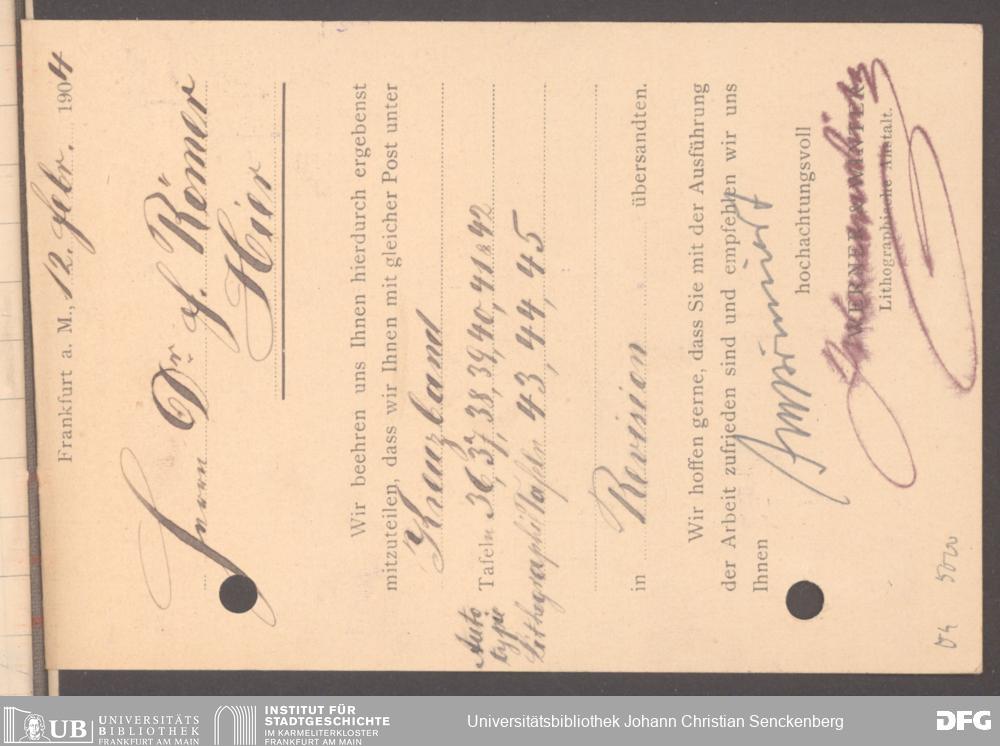 Frankfurt a. M., 12. Febr. 1904
Herrn Dr. F. Römer
Hier
Wir beehren uns Ihnen hierdurch ergebenst
mitzuteilen, dass wir Ihnen mit gleicher Post unter
Kreuzband
Autotypie Tafeln 36, 37, 38, 39, 40, 41 & 42
Lithographie Tafeln 43, 44, 45
in Revision übersandten.
Wir hoffen gerne, dass Sie mit der Ausführung
der Arbeit zufrieden sind und empfehlen wir uns
Ihnen
hochachtungsvoll
WERNER & WINTER
Lithographische Anstalt.
UB UNIVERSITÄTS
BIBLIOTHEK
FRANKFURT AM MAIN
INSTITUT FÜR
STADTGESCHICHTE
IM KARMELITERKLOSTER
FRANKFURT AM MAIN
Universitätsbibliothek Johann Christian Senckenberg
DFG